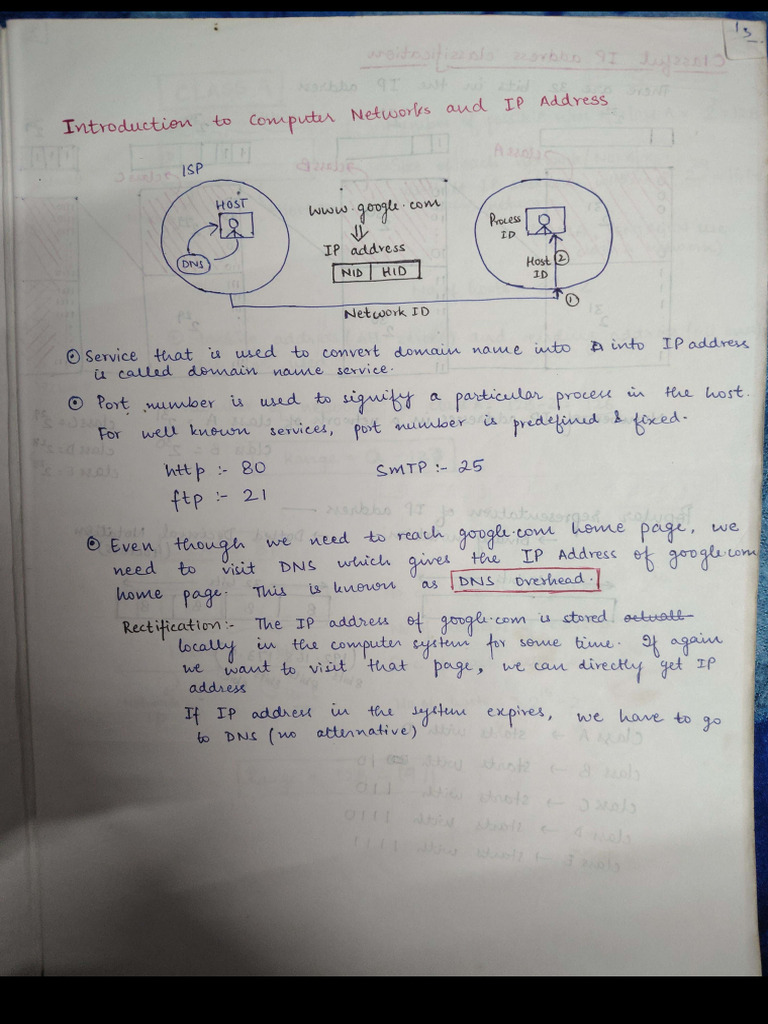 13
Introduction to Computer Networks and IP Address
ISP
HOST
DNS
www.google.com
IP address
NID HID
Process
ID
Host
ID
2
1
Network ID
Service that is used to convert domain name into into IP address
is called domain name service.
Port number is used to signify a particular process in the host.
For well known services, port number is predefined & fixed.
http :- 80 SMTP :- 25
ftp :- 21
Even though we need to reach google.com home page, we
need to visit DNS which gives the IP Address of google.com
home page. This is known as DNS overhead.
Rectification:- The IP address of google.com is stored
locally in the computer system for some time. If again
we want to visit that page, we can directly get IP
address
If IP address in the system expires, we have to go
to DNS (no alternative)